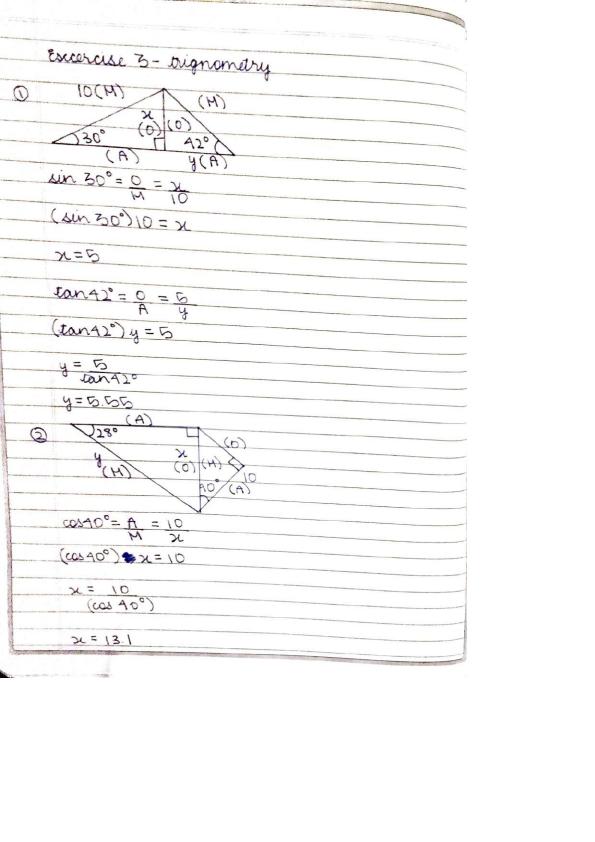 Excercise 3 - trignometry
① 10(M) (M)
x
(O) (O)
30° 42°
(A) y(A)
sin 30° = O/M = x/10
(sin 30°)10 = x
x = 5
tan42° = O/A = 5/y
(tan42°) y = 5
y = 5/tan42°
y = 5.55
② (A)
28° (O)
x
y (O) (H)
(M) 10
40° (A)
cos40° = A/M = 10/x
(cos40°) x = 10
x = 10/(cos 40°)
x = 13.1